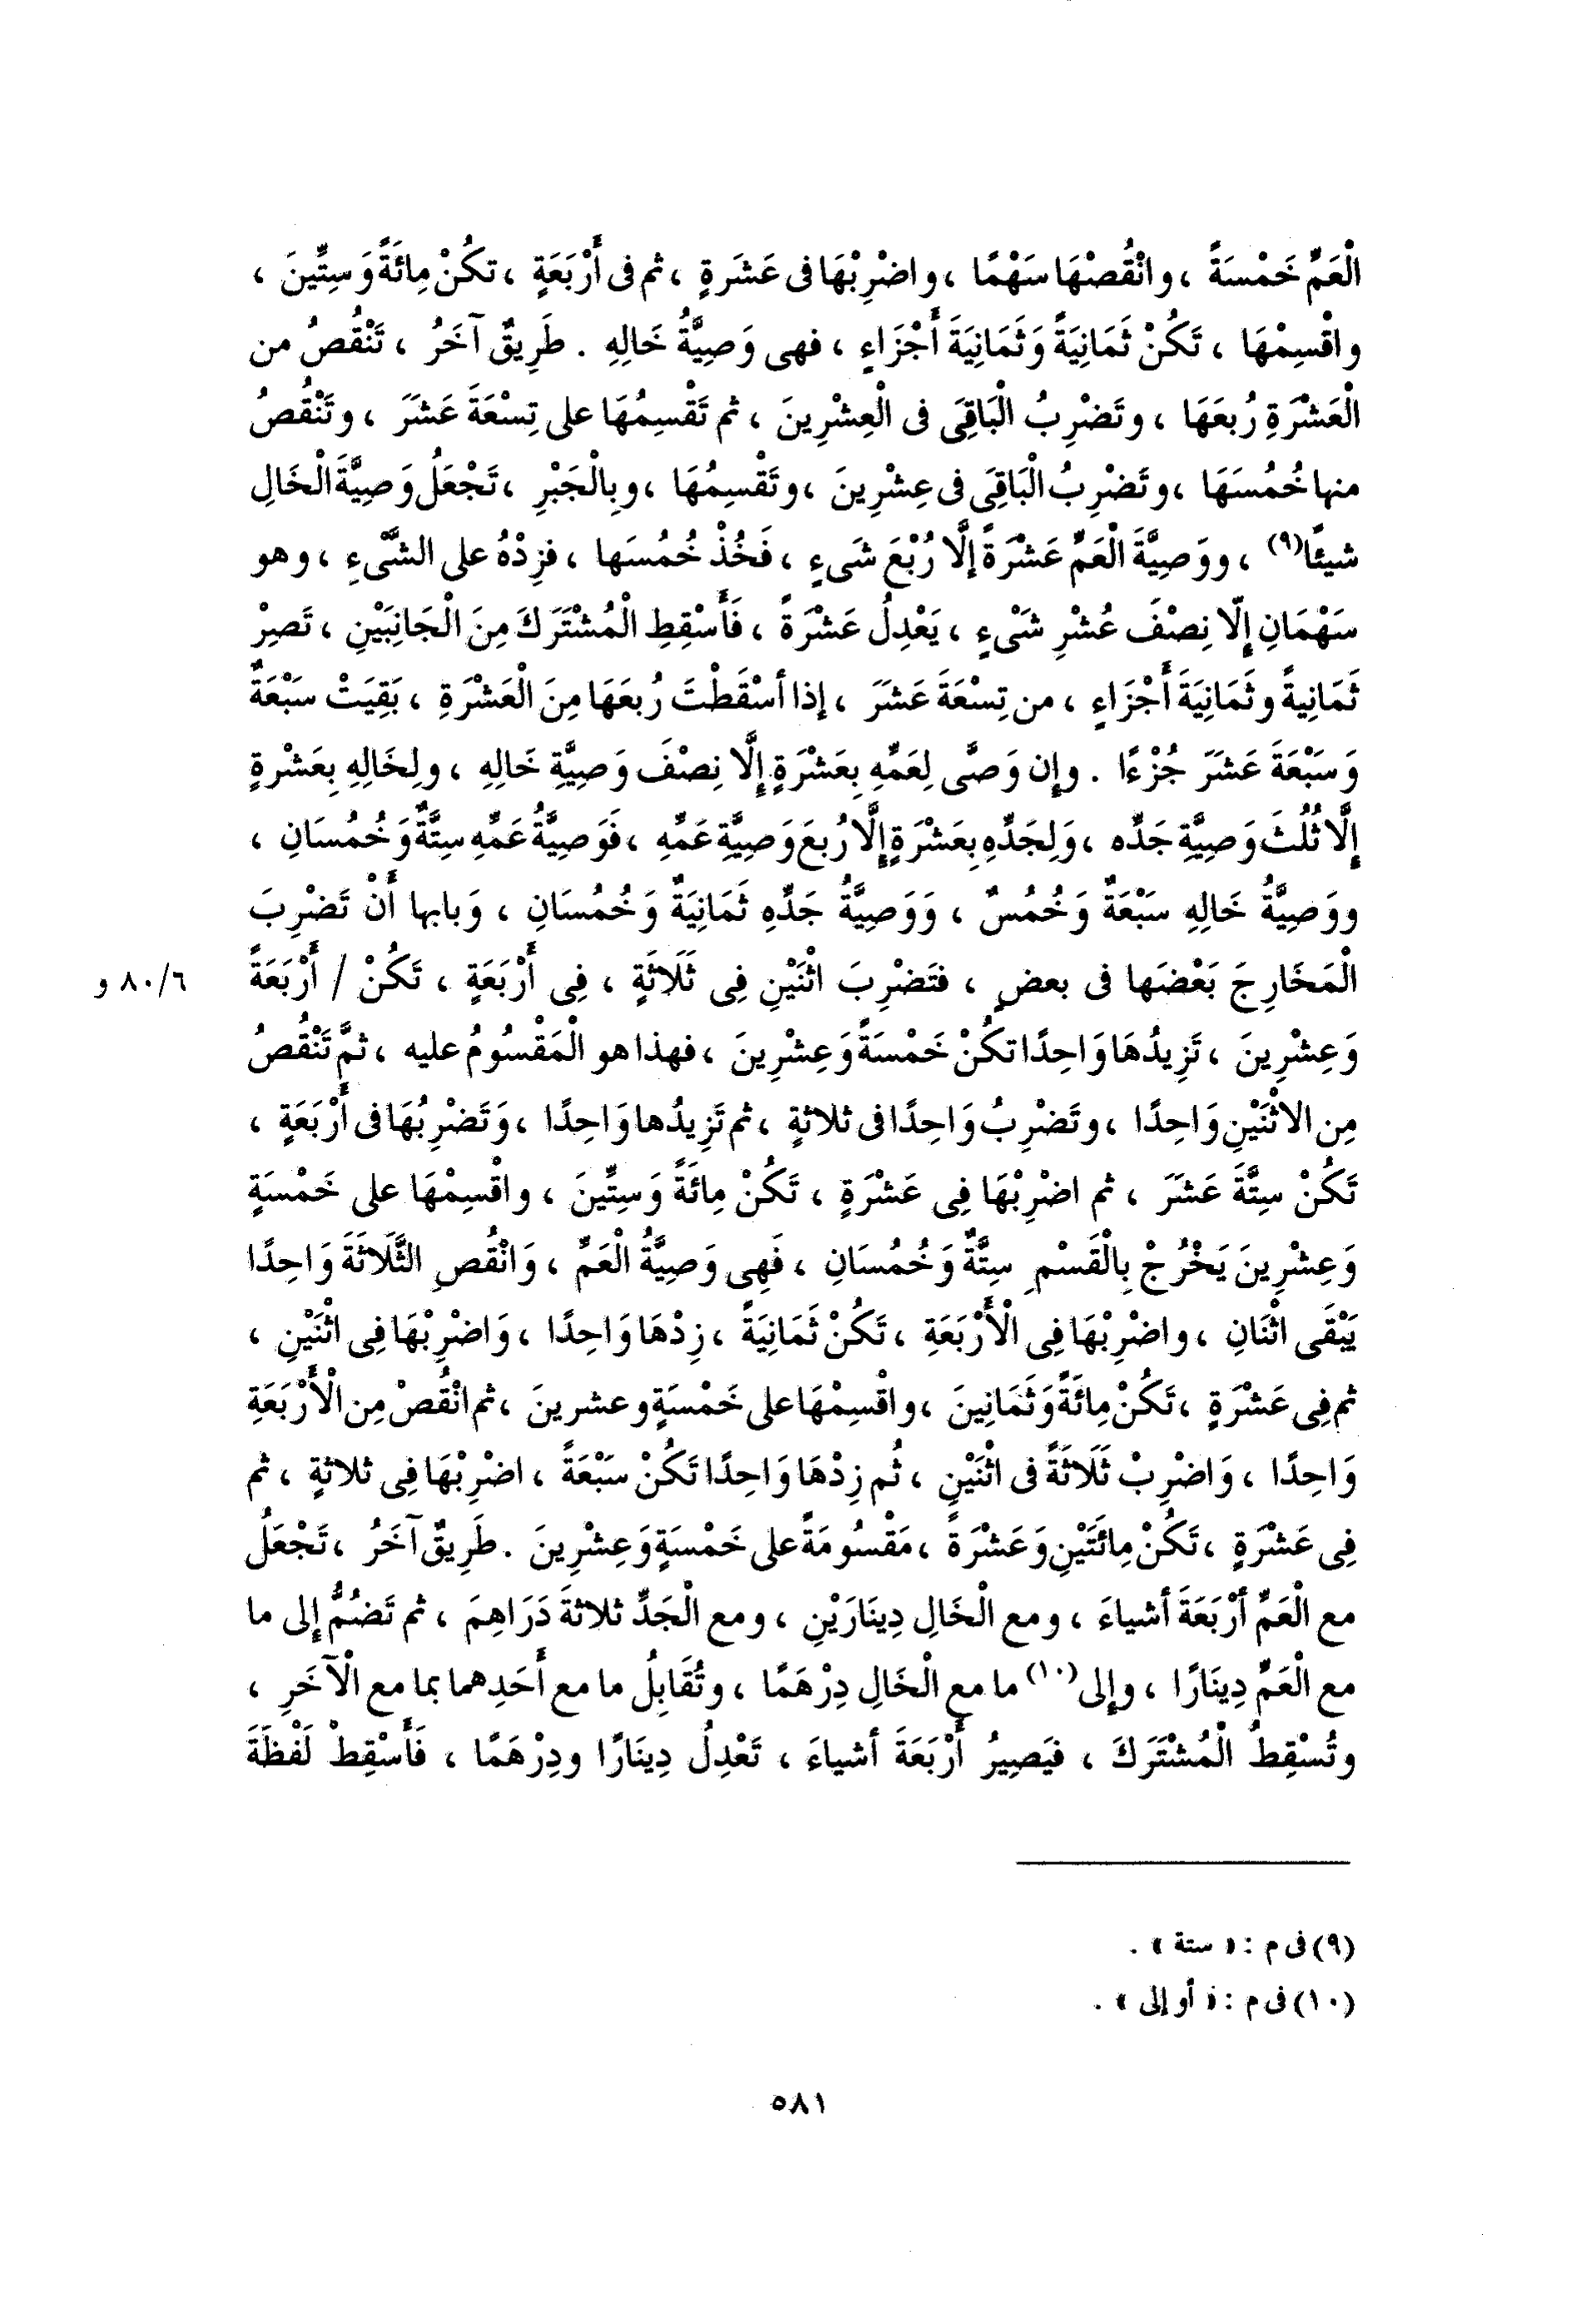 الْعَمِّ خَمْسَةً ، وانْقُصْهَا سَهْمًا ، واضْرِبْهَا فى عَشَرةٍ ، ثم فى أَرْبَعَةٍ ، تكُنْ مِائَةً وَسِتِّينَ ،
واقْسِمْهَا ، تَكُنْ ثَمَانِيَةً وَثَمَانِيَةَ أَجْزَاءٍ ، فهى وَصِيَّةُ خَالِهِ . طَرِيقٌ آخَرُ ، تَنْقُصُ من
الْعَشْرَةِ رُبعَهَا ، وتَضْرِبُ الْبَاقِىَ فى الْعِشْرِينَ ، ثم تَقْسِمُهَا على تِسْعَةَ عَشَرَ ، وتَنْقُصُ
منها خُمُسَهَا ، وتَضْرِبُ الْبَاقِىَ فى عِشْرِينَ ، وتَقْسِمُهَا ، وبِالْجَبْرِ ، تَجْعَلُ وَصِيَّةَ الْخَالِ
شيئًا(٩) ، ووَصِيَّةَ الْعَمِّ عَشْرَةً إلَّا رُبْعَ شَىءٍ ، فَخُذْ خُمُسَها ، فزِدْهُ على الشَّىْءِ ، وهو
سَهْمَانِ إلَّا نِصْفَ عُشْرِ شَىْءٍ ، يَعْدِلُ عَشْرَةً ، فَأَسْقِطِ الْمُشْتَرَكَ مِنَ الْجَانِبَيْنِ ، تَصِرْ
ثَمَانِيةً وثَمَانِيَةَ أَجْزَاءٍ ، من تِسْعَةَ عَشَرَ ، إذا أسْقَطْتَ رُبعَهَا مِنَ الْعَشْرَةِ ، بَقِيَتْ سَبْعَةٌ
وَسَبْعَةَ عَشَرَ جُزْءًا . وإن وَصَّى لِعَمِّهِ بِعَشْرَةٍ إلَّا نِصْفَ وَصِيَّةِ خَالِهِ ، ولِخَالِهِ بِعَشْرةٍ
إلَّا ثُلُثَ وَصِيَّةِ جَدِّه ، وَلِجَدِّهِ بِعَشْرَةٍ إلَّا رُبعَ وَصِيَّةِ عَمِّهِ ، فَوَصِيَّةُ عَمِّهِ سِتَّةٌ وَخُمُسَانِ ،
ووَصِيَّةُ خَالِهِ سَبْعَةٌ وَخُمُسٌ ، وَوَصِيَّةُ جَدِّهِ ثَمَانِيَةٌ وَخُمُسَانِ ، وَبابها أَنْ تَضْرِبَ
الْمَخَارِجَ بَعْضَها فى بعضٍ ، فتَضْرِبَ اثْنَيْنِ فِى ثَلَاثَةٍ ، فِى أَرْبَعَةٍ ، تَكُنْ / أَرْبَعَةً ٨٠/٦ و
وَعِشْرِينَ ، تَزِيدُهَا وَاحِدًا تكُنْ خَمْسَةً وَعِشْرِينَ ، فهذا هو الْمَقْسُومُ عليه ، ثمَّ تَنْقُصُ
مِن الاثْنَيْنِ وَاحِدًا ، وتَضْرِبُ وَاحِدًا فى ثلاثةٍ ، ثم تَزِيدُها وَاحِدًا ، وَتَضْرِبُهَا فى أَرْبَعَةٍ ،
تَكُنْ سِتَّةَ عَشَرَ ، ثم اضْرِبْهَا فِى عَشْرَةٍ ، تَكُنْ مِائَةً وَسِتِّينَ ، واقْسِمْهَا على خَمْسَةٍ
وَعِشْرِينَ يَخْرُجْ بِالْقَسْمِ سِتَّةٌ وَخُمُسَانِ ، فَهِى وَصِيَّةُ الْعَمِّ ، وَانْقُصِ الثَّلَاثَةَ وَاحِدًا
يَبْقَى اثْنَانِ ، واضْرِبْهَا فِى الْأَرْبَعَةِ ، تَكُنْ ثَمَانِيَةً ، زِدْهَا وَاحِدًا ، وَاضْرِبْهَا فِى اثْنَيْنِ ،
ثم فِى عَشْرَةٍ ، تَكُنْ مِائَةً وَثَمَانِينَ ، واقْسِمْهَا على خَمْسَةٍ وعشرينَ ، ثم انْقُصْ مِن الْأَرْبَعَةِ
وَاحِدًا ، وَاضْرِبْ ثَلَاثَةً فى اثْنَيْنِ ، ثُم زِدْهَا وَاحِدًا تَكُنْ سَبْعَةً ، اضْرِبْهَا فِى ثلاثةٍ ، ثم
فِى عَشْرَةٍ ، تَكُنْ مِائَتَيْنِ وَعَشْرَةً ، مَقْسُومَةً على خَمْسَةٍ وَعِشْرِينَ . طَرِيقٌ آخَرُ ، تَجْعَلُ
مع الْعَمِّ أَرْبَعَةَ أشياءَ ، ومع الْخَالِ دِينَارَيْنِ ، ومع الْجَدِّ ثلاثةَ دَرَاهِمَ ، ثم تَضُمُّ إلى ما
مع الْعَمِّ دِينَارًا ، وإلى(١٠) ما مع الْخَالِ دِرْهَمًا ، وتُقَابِلُ ما مع أَحَدِهما بما مع الْآخَرِ ،
وتُسْقِطُ الْمُشْتَرَكَ ، فيَصِيرُ أَرْبَعَةَ أشياءَ ، تَعْدِلُ دِينَارًا ودِرْهَمًا ، فَأَسْقِطْ لَفْظَةَ
(٩) فى م : « ستة » .
(١٠) فى م : « أو إلى » .
٥٨١